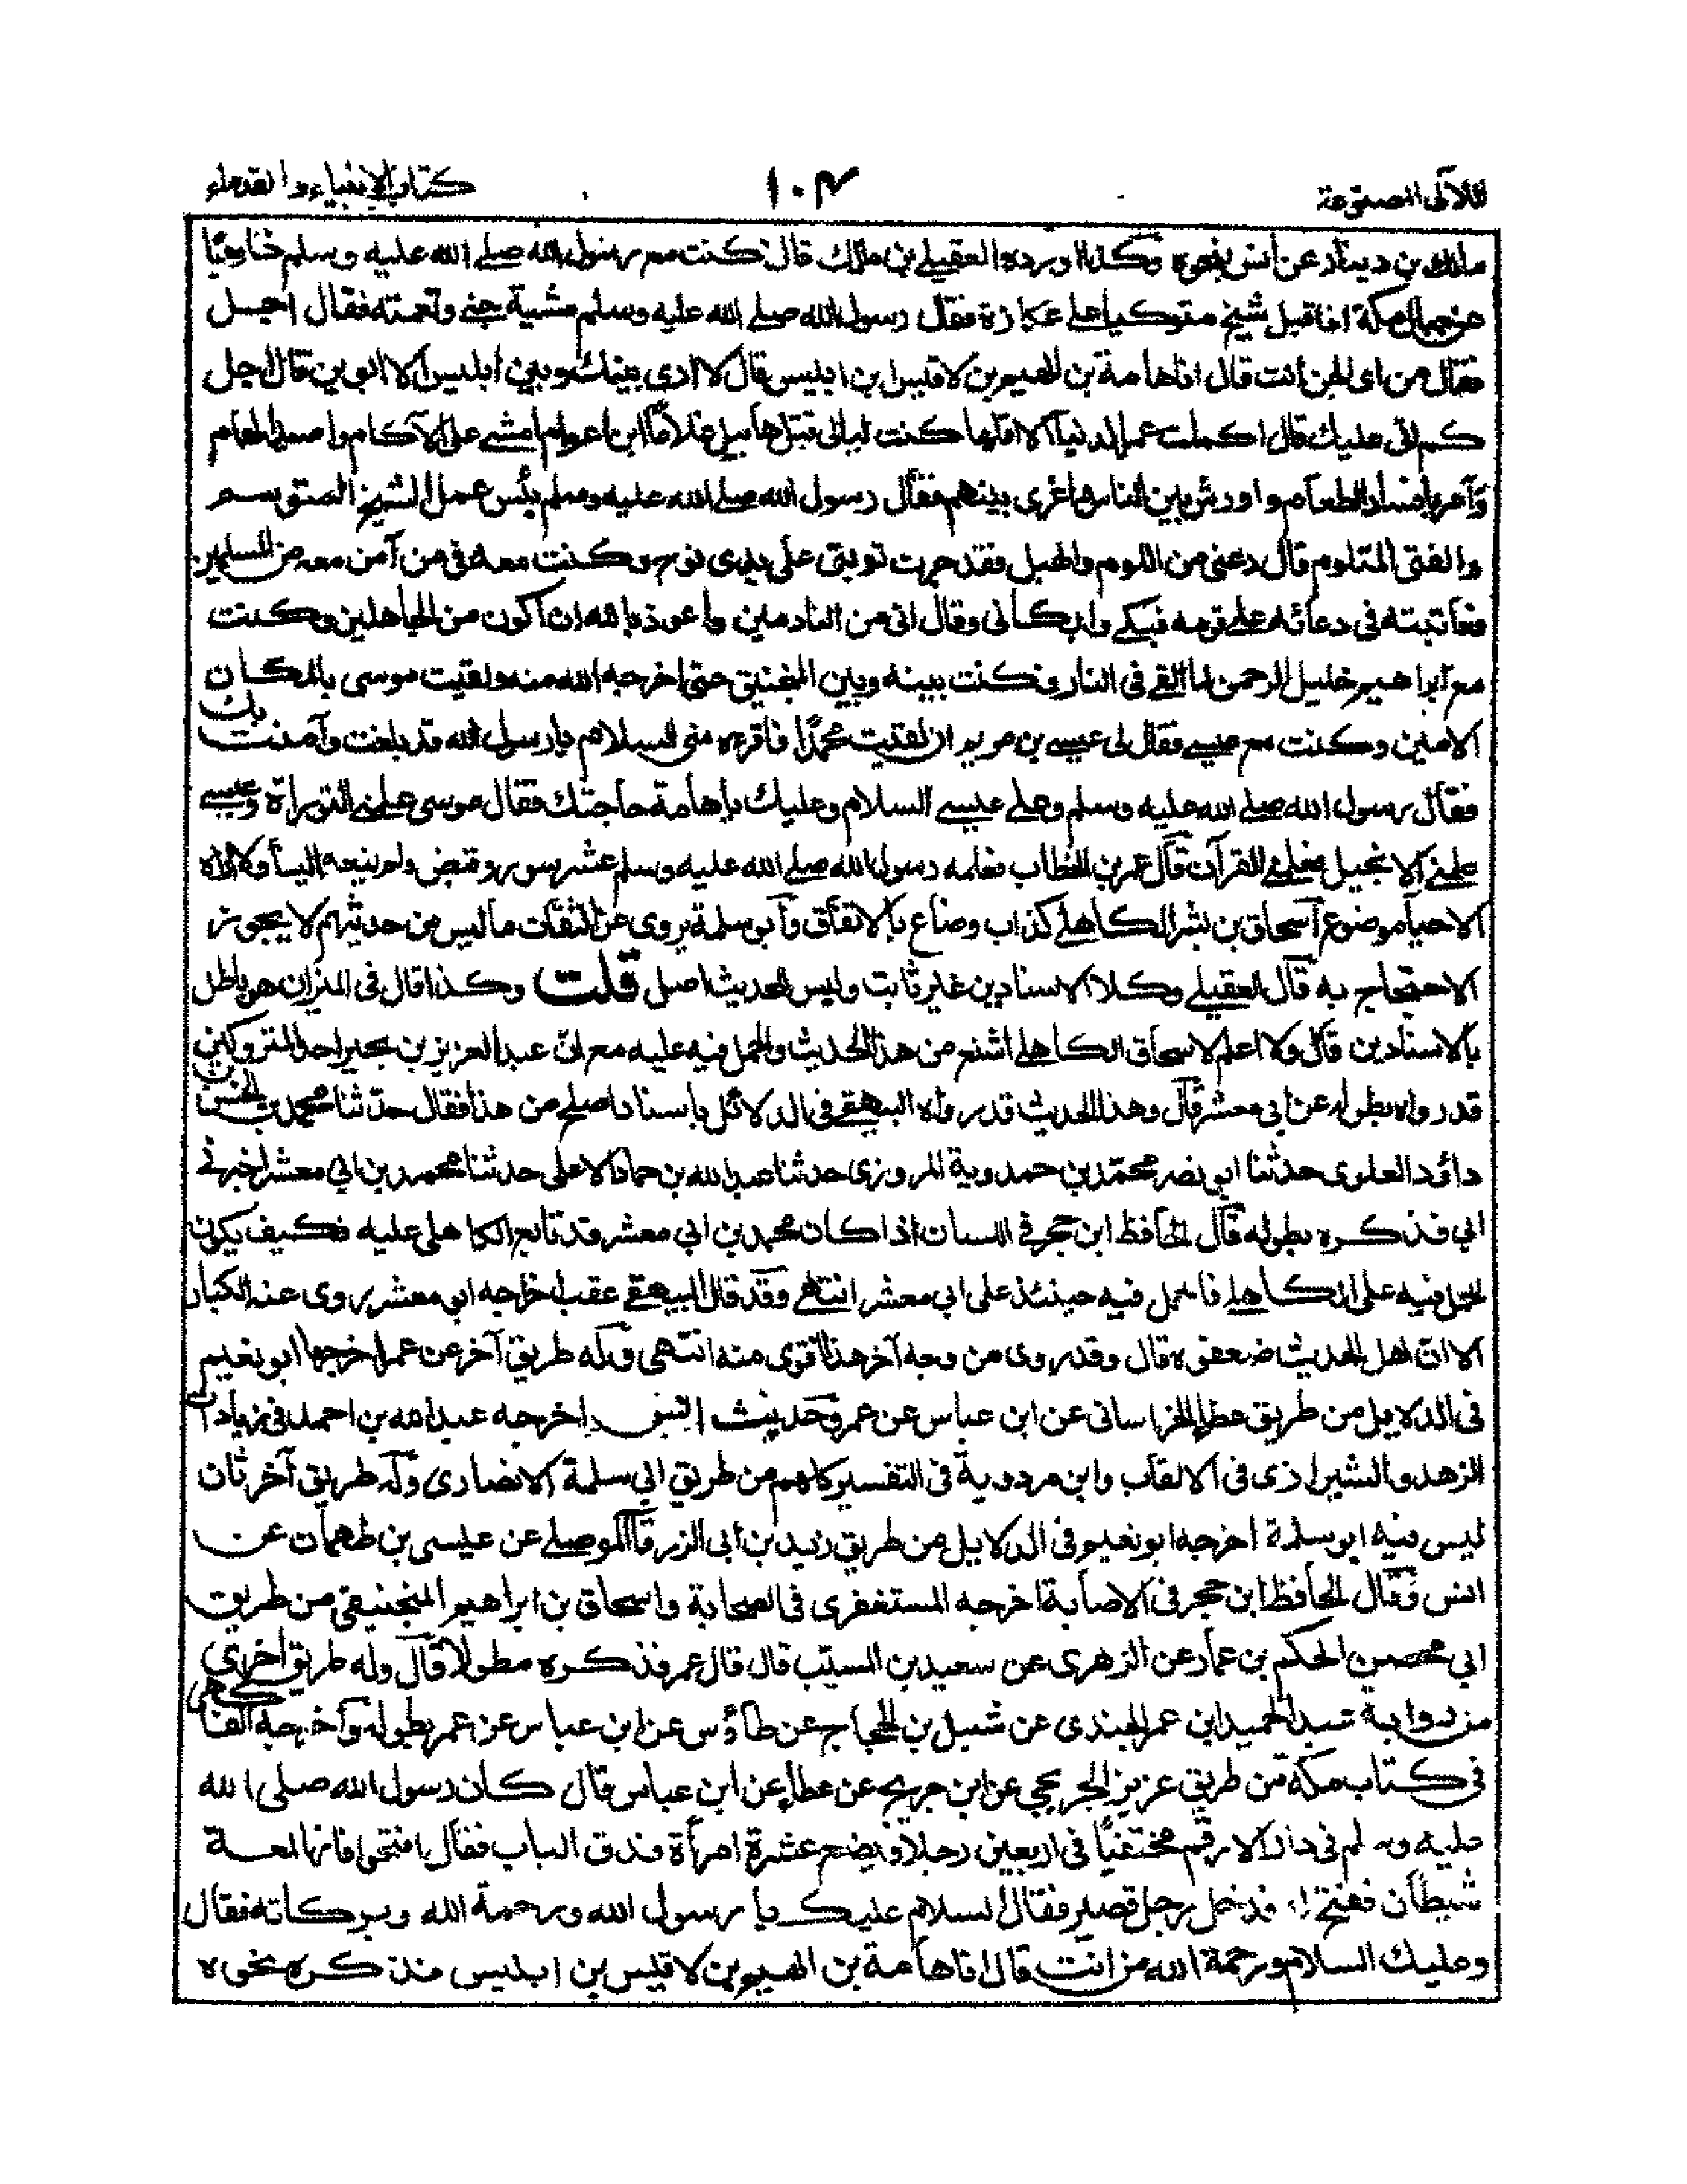 اللآلى المصنوعة
١٠٣
كتاب الانبياء والقدماء
مالك بن دينار عن أنس بنحوه وكذا اورده العقيلي بن مالك قال كنت مع رسول الله صلى الله عليه وسلم خارجًا
عن جبال مكة اذ اقبل شيخ متوكيا على عكازة فقال رسول الله صلى الله عليه وسلم مشية جنى ونغمته فقال اجل
فقال من اى الجن أنت قال اناهامة بن الهيم بن لاقيس بن ابليس قال لا ارى بينك وبين أبليس الا ابوين قال اجل
كم اتى عليك قال اكملت عمر الدنيا الا اقلها كنت ليالى قتل هابيل غلامًا ابن اعوام امشى على الآكام واصطاد الهام
وآمر بافساد الطعام واورش بين الناس واغرى بينهم فقال رسول الله صلى الله عليه وسلم بئس عمل الشيخ المتوسم
والفتى المتلوم قال دعنى من اللوم والهبل فقد جرت توبتى على يدى نوح وكنت معه فى من آمن معه من المسلمين
فعاتبته فى دعائه على قومه فبكى وابكانى وقال انى من النادمين واعوذ بالله ان اكون من الجاهلين وكنت
مع ابراهيم خليل الرحمن لما القى فى النار فكنت بينه وبين المنجنيق حتى اخرجه الله منه ولقيت موسى بالمكان
الامين وكنت مع عيسى فقال لى عيسى بن مريم ان لقيت محمدًا فاقرءه منى السلام يارسول الله قد بلغت وآمنت بك
فقال رسول الله صلى الله عليه وسلم وعلى عيسى السلام وعليك ياهامة حاجتك فقال موسى علمنى التوراة وعيسى
علمنى الانجيل فعلمنى القرآن قال عمر بن الخطاب فعلمه رسول الله صلى الله عليه وسلم عشر سور وقبض ولم ينعه الينا ولا اراه
الا حيا موضوع اسحاق بن بشر الكاهلى كذاب وضاع بالاتفاق وابو سلمة يروى عن الثقات ما ليس من حديثهم لا يجوز
الاحتجاج به قال العقيلى وكلا الاسنادين غير ثابت وليس للحديث اصل قلت وكذا قال فى الميزان هو باطل
بالاسنادين قال ولا اعلم لاسحاق الكاهلى اشنع من هذا الحديث والحمل فيه عليه مع ان عبد العزيز بن بحير احد المتروكين
قد رواه بطوله عن ابى معشر قال وهذا الحديث قد رواه البيهقى فى الدلائل باسناد اصلح من هذا فقال حدثنا محمد بن الحسن بن
داؤد العلوى حدثنا ابو نصر محمد بن حمدوية المروزى حدثنا عبد الله بن حماد الاملى حدثنا محمد بن ابى معشر اخبرنى
ابى فذكره بطوله قال الحافظ ابن حجر فى اللسان اذا كان محمد بن ابى معشر قد تابع الكاهلى عليه فكيف يكون
الحمل فيه على الكاهلى فالحمل فيه حينئذ على ابى معشر انتهى وقد قال البيهقى عقب اخراجه ابو معشر روى عنه الكبار
الا ان اهل الحديث ضعفوه قال وقد روى من وجه آخر هذا اقوى منه انتهى وله طريق آخر عن عمر اخرجها ابو نعيم
فى الدلايل من طريق عطاء الخراسانى عن ابن عباس عن عمر وحديث انس اخرجه عبد الله بن احمد فى زيادات
الزهد والشيرازى فى الالقاب وابن مردوية فى التفسير كلهم من طريق ابى سلمة الانصارى وله طريق آخر ثان
ليس فيه ابو سلمة اخرجه ابو نعيم فى الدلايل من طريق زيد بن ابى الزرقا الموصلى عن عيسى بن طهمان عن
انس وقال الحافظ ابن حجر فى الاصابة اخرجه المستغفرى فى الصحابة واسحاق بن ابراهيم المنجنيقى من طريق
ابى محصن الحكم بن عمار عن الزهرى عن سعيد بن المسيّب قال قال عمر فذكره مطولا قال وله طريق اخرى
من رواية عبد الحميد ابن عمر الجندى عن شبل بن الحجاج عن طاؤس عن ابن عباس عن عمر بطوله وآخرجه الفاكهى
فى كتاب مكة من طريق عزيز الجريجى عن ابن جريج عن عطاء عن ابن عباس قال كان رسول الله صلى الله
عليه وسلم فى دار الارقم مختفيًا فى اربعين رجلا وبضع عشرة امرأة فدق الباب فقال افتحوا فانها لعمة
شيطان ففتح له فدخل رجل قصير فقال السلام عليك يا رسول الله ورحمة الله وبركاته فقال
وعليك السلام ورحمة الله من انت قال اناهامة بن الهيم بن لاقيس بن ابليس فذكره نحوه